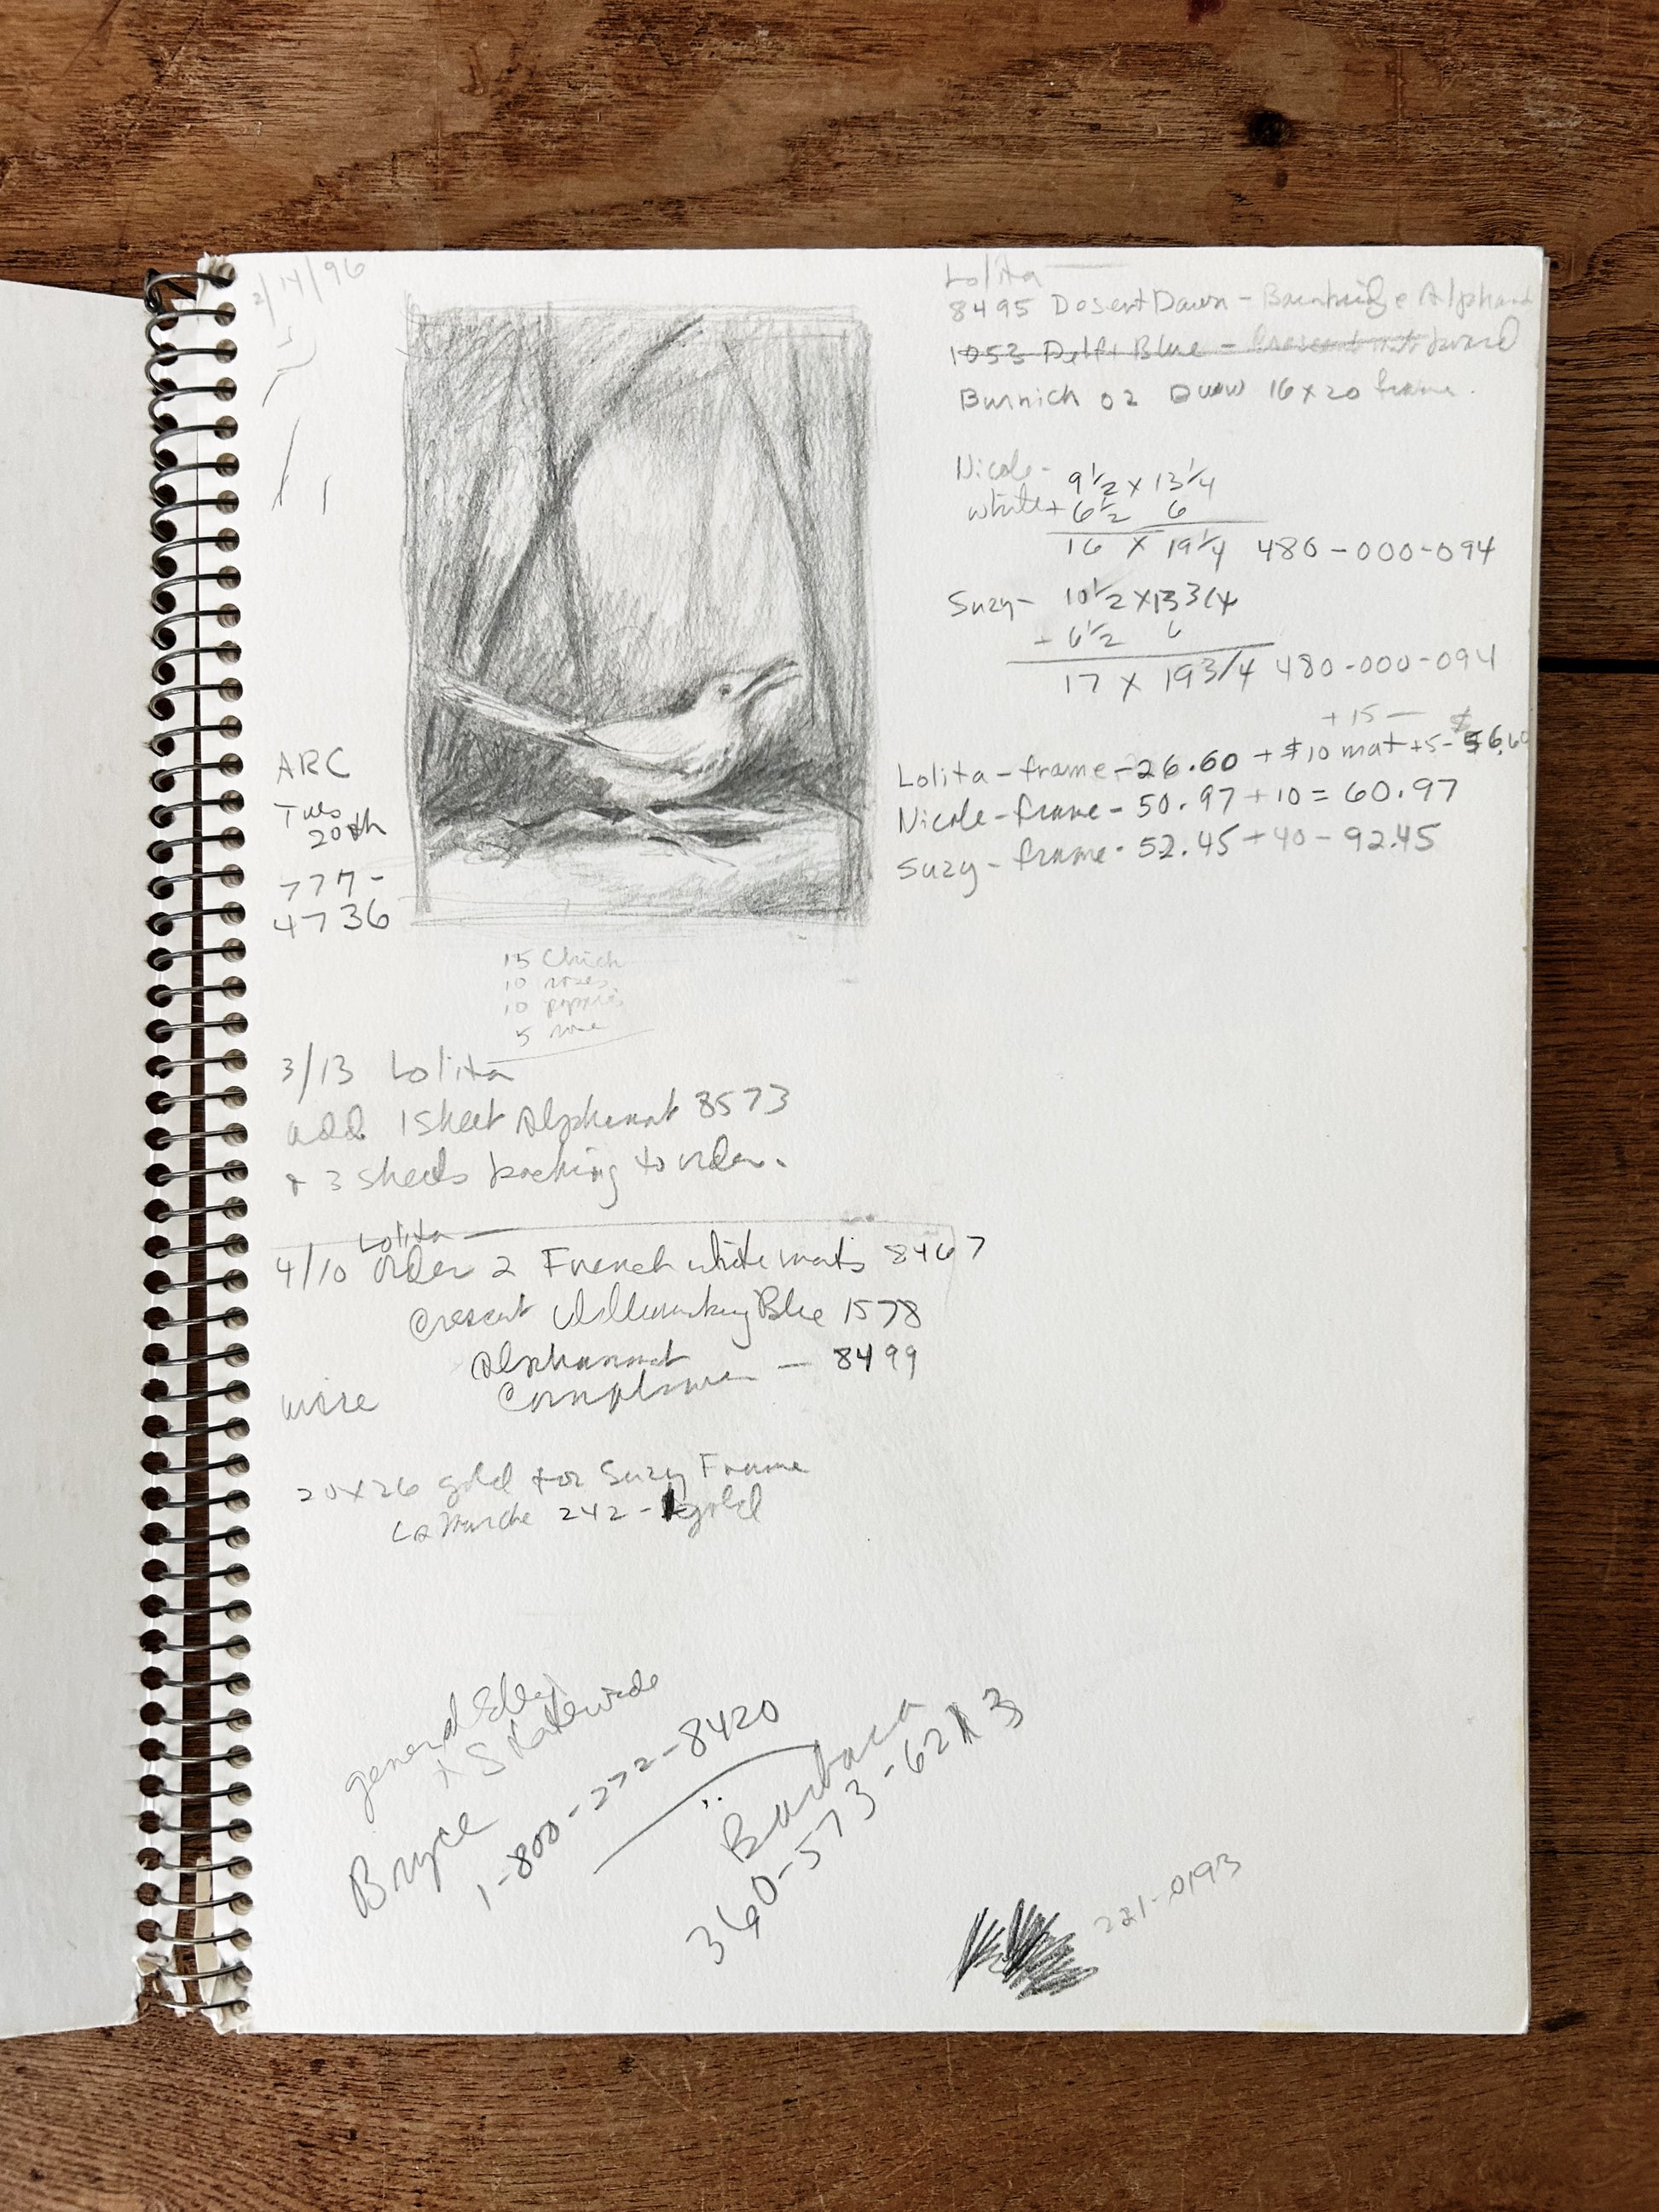 2/14/96
Lolita
8495 Desert Dawn - Bainbridge Alphamat
1053 Delft Blue -
Burnich 02 16 x 20 frame.
Nicole - 9 1/2 x 13 1/4
white + 6 1/2 6
16 x 19 1/4 480-000-094
Suzy - 10 1/2 x 13 3/4
- 6 1/2 6
17 x 19 3/4 480-000-094
+ 15 —
Lolita - frame - 26.60 + $10 mat + 5 - $56.60
Nicole - frame - 50.97 + 10 = 60.97
Suzy - frame - 52.45 + 40 - 92.45
ARC
Tues
20th
777-
4736
15 Chick
10 roses
10 poppies
5
3/13 Lolita
add 1 sheet Alphamat 8573
+ 3 sheets backing to order.
Lolita
4/10 order 2 French white mats 8467
Crescent Williamsburg Blue 1578
Alphamat
— 8499
wire
20x26 gold for Suzy Frame
La Marche 242 - gold
general
+ Statewide
Bryce
1-800-272-8420
Barbara
360-573-6213
221-0193